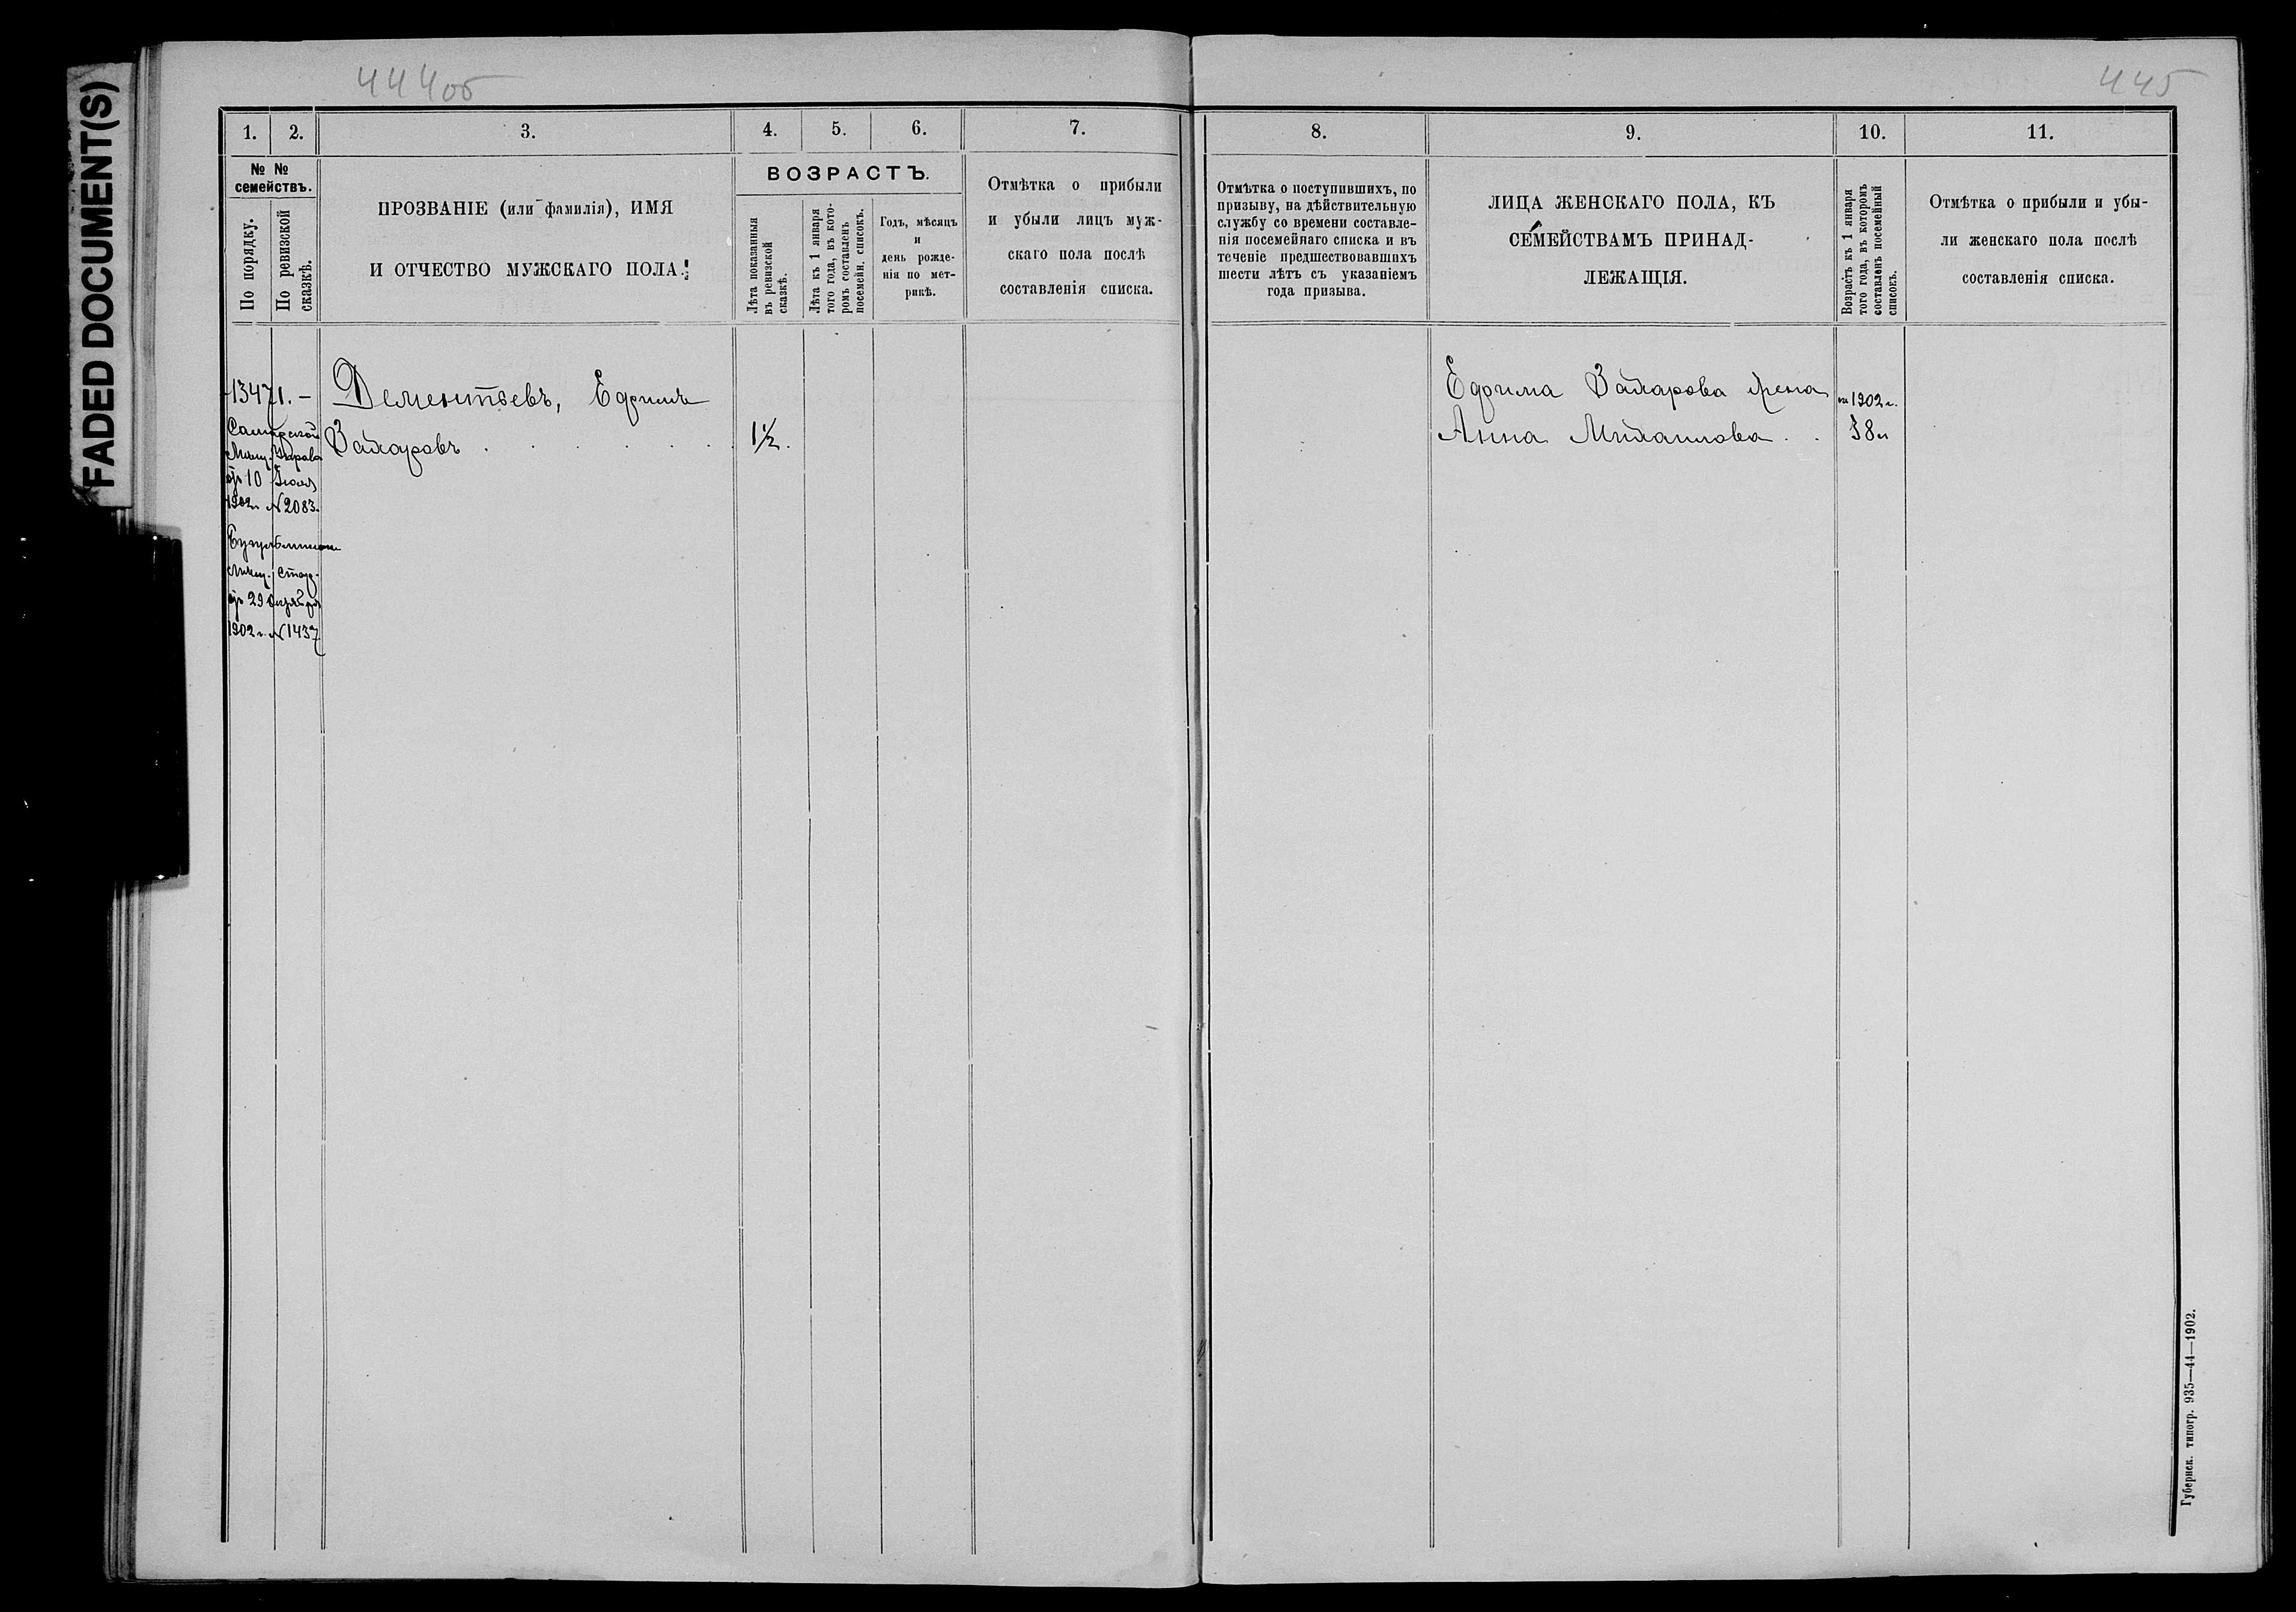 FADED DOCUMENT(S)
444об
445
1. 2. 3. 4. 5. 6. 7.
8. 9. 10. 11.
№ №
семействъ.
По порядку.
По ревизской
сказкѣ.
ПРОЗВАНІЕ (или фамилія), ИМЯ
И ОТЧЕСТВО МУЖСКАГО ПОЛА.
ВОЗРАСТЪ.
Лѣта показанныя
въ ревизской
сказкѣ.
Лѣта къ 1 января
того года, въ кото-
ромъ составленъ
посемейн. списокъ.
Годъ, мѣсяцъ
и
день рожде-
нія по мет-
рикѣ.
Отмѣтка о прибыли
и убыли лицъ муж-
скаго пола послѣ
составленія списка.
Отмѣтка о поступившихъ, по
призыву, на дѣйствительную
службу со времени составле-
нія посемейнаго списка и въ
теченіе предшествовавшихъ
шести лѣтъ съ указаніемъ
года призыва.
ЛИЦА ЖЕНСКАГО ПОЛА, КЪ
СЕМЕЙСТВАМЪ ПРИНАД-
ЛЕЖАЩІЯ.
Возрасть къ 1 января
того года, въ которомъ
составленъ посемейный
списокъ.
Отмѣтка о прибыли и убы-
ли женскаго пола послѣ
составленія списка.
13471. –
Самарской
Мѣщ. Управы
отъ 10 Іюля
1902 г. № 2083.
Бугульминск
мѣщ. Стар.
отъ 29 октября
1902 г. № 1437
Дементьевъ, Ефимъ
Захаровъ . . . . . .
1½.
Ефима Захарова жена
Анна Михаилова . .
на 1902 г.
38 л
Губернск. типогр. 935—44—1902.